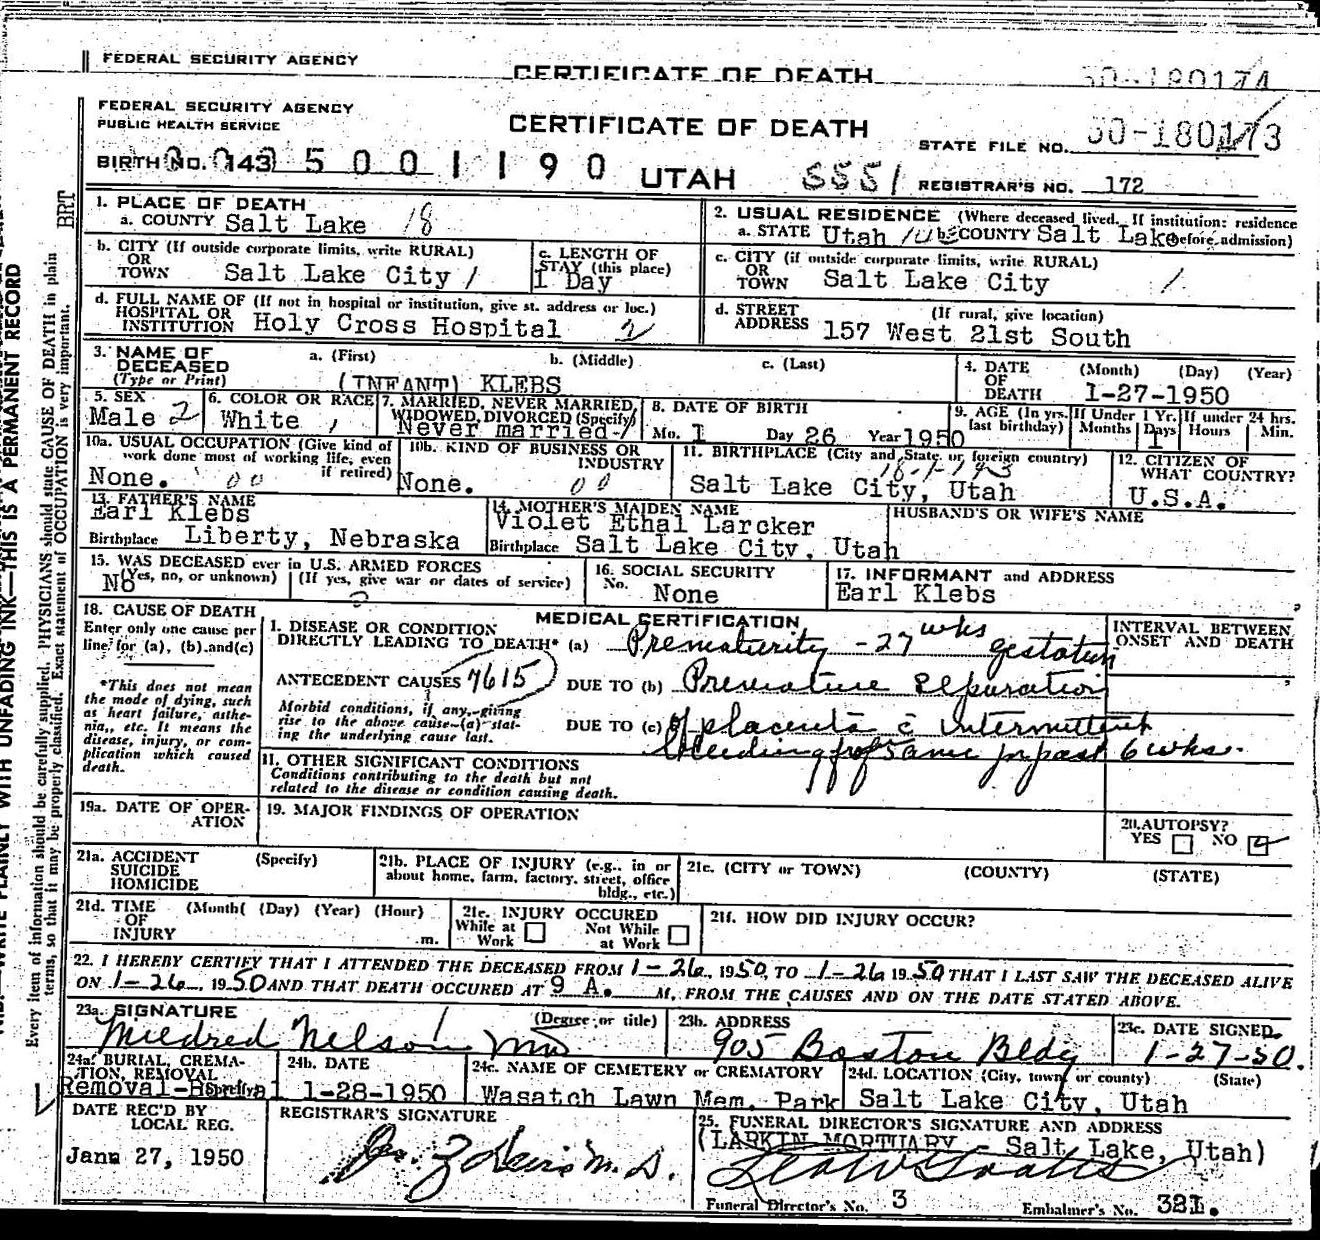 FEDERAL SECURITY AGENCY CERTIFICATE OF DEATH
FEDERAL SECURITY AGENCY
PUBLIC HEALTH SERVICE
CERTIFICATE OF DEATH
STATE FILE NO.
BIRTH NO. 143
UTAH 5551 REGISTRAR'S NO. 172
1. PLACE OF DEATH
a. COUNTY Salt Lake 18
2. USUAL RESIDENCE (Where deceased lived. If institution: residence before admission)
a. STATE Utah b. COUNTY Salt Lake
b. CITY (If outside corporate limits, write RURAL)
OR
TOWN Salt Lake City 1
c. LENGTH OF
STAY (this place)
1 Day
c. CITY (if outside corporate limits, write RURAL)
OR
TOWN Salt Lake City 1
d. FULL NAME OF (If not in hospital or institution, give st. address or loc.)
HOSPITAL OR
INSTITUTION Holy Cross Hospital 2
d. STREET (If rural, give location)
ADDRESS 157 West 21st South
3. NAME OF
DECEASED
(Type or Print)
a. (First) b. (Middle) c. (Last)
(INFANT) KLEBS
4. DATE
OF
DEATH
(Month) (Day) (Year)
1-27-1950
5. SEX
Male 2
6. COLOR OR RACE
White 1
7. MARRIED, NEVER MARRIED,
WIDOWED, DIVORCED (Specify)
Never married
8. DATE OF BIRTH
Mo. 1 Day 26 Year 1950
9. AGE (In yrs. last birthday)
If Under 1 Yr.
Months Days
1
If under 24 hrs.
Hours Min.
10a. USUAL OCCUPATION (Give kind of
work done most of working life, even
if retired)
None. 00
10b. KIND OF BUSINESS OR
INDUSTRY
None. 00
11. BIRTHPLACE (City and State, or foreign country)
Salt Lake City, Utah
12. CITIZEN OF
WHAT COUNTRY?
U.S.A.
13. FATHER'S NAME
Earl Klebs
Birthplace Liberty, Nebraska
14. MOTHER'S MAIDEN NAME
Violet Ethal Larcker
Birthplace Salt Lake City, Utah
HUSBAND'S OR WIFE'S NAME
15. WAS DECEASED ever in U.S. ARMED FORCES
(Yes, no, or unknown) (If yes, give war or dates of service)
No
16. SOCIAL SECURITY
No. None
17. INFORMANT and ADDRESS
Earl Klebs
18. CAUSE OF DEATH
Enter only one cause per
line for (a), (b) and (c)
*This does not mean
the mode of dying, such
as heart failure, asthe-
nia,, etc. It means the
disease, injury, or com-
plication which caused
death.
MEDICAL CERTIFICATION
I. DISEASE OR CONDITION
DIRECTLY LEADING TO DEATH* (a) Prematurity - 27 wks gestation
ANTECEDENT CAUSES 7615 DUE TO (b) Premature separation
Morbid conditions, if any, giving
rise to the above cause (a) stat-
ing the underlying cause last.
DUE TO (c) of placenta c intermittent
bleeding for past 6 wks.
INTERVAL BETWEEN
ONSET AND DEATH
11. OTHER SIGNIFICANT CONDITIONS
Conditions contributing to the death but not
related to the disease or condition causing death.
19a. DATE OF OPER-
ATION
19. MAJOR FINDINGS OF OPERATION
20. AUTOPSY?
YES NO
21a. ACCIDENT (Specify)
SUICIDE
HOMICIDE
21b. PLACE OF INJURY (e.g., in or
about home, farm, factory, street, office
bldg., etc.)
21c. (CITY or TOWN) (COUNTY) (STATE)
21d. TIME (Month( (Day) (Year) (Hour)
OF
INJURY m.
21e. INJURY OCCURED
While at Work
Not While at Work
21f. HOW DID INJURY OCCUR?
22. I HEREBY CERTIFY THAT I ATTENDED THE DECEASED FROM 1-26, 1950, TO 1-26 1950 THAT I LAST SAW THE DECEASED ALIVE
ON 1-26, 1950 AND THAT DEATH OCCURED AT 9 A. M, FROM THE CAUSES AND ON THE DATE STATED ABOVE.
23a. SIGNATURE (Degree or title)
Mildred Nelson MD
23b. ADDRESS
905 Boston Bldg
23c. DATE SIGNED
1-27-50.
24a. BURIAL, CREMA-
TION, REMOVAL
(Specify)
24b. DATE
1-28-1950
24c. NAME OF CEMETERY or CREMATORY
Wasatch Lawn Mem. Park
24d. LOCATION (City, town, or county) (State)
Salt Lake City, Utah
DATE REC'D BY
LOCAL REG.
Jan 27, 1950
REGISTRAR'S SIGNATURE
25. FUNERAL DIRECTOR'S SIGNATURE AND ADDRESS
(LARKIN MORTUARY - Salt Lake, Utah)
Funeral Director's No. 3 Embalmer's No. 321.
WRITE PLAINLY WITH UNFADING INK—THIS IS A PERMANENT RECORD
Every item of information should be carefully supplied. PHYSICIANS should state CAUSE OF DEATH in plain
terms, so that it may be properly classified. Exact statement of OCCUPATION is very important.
BRT